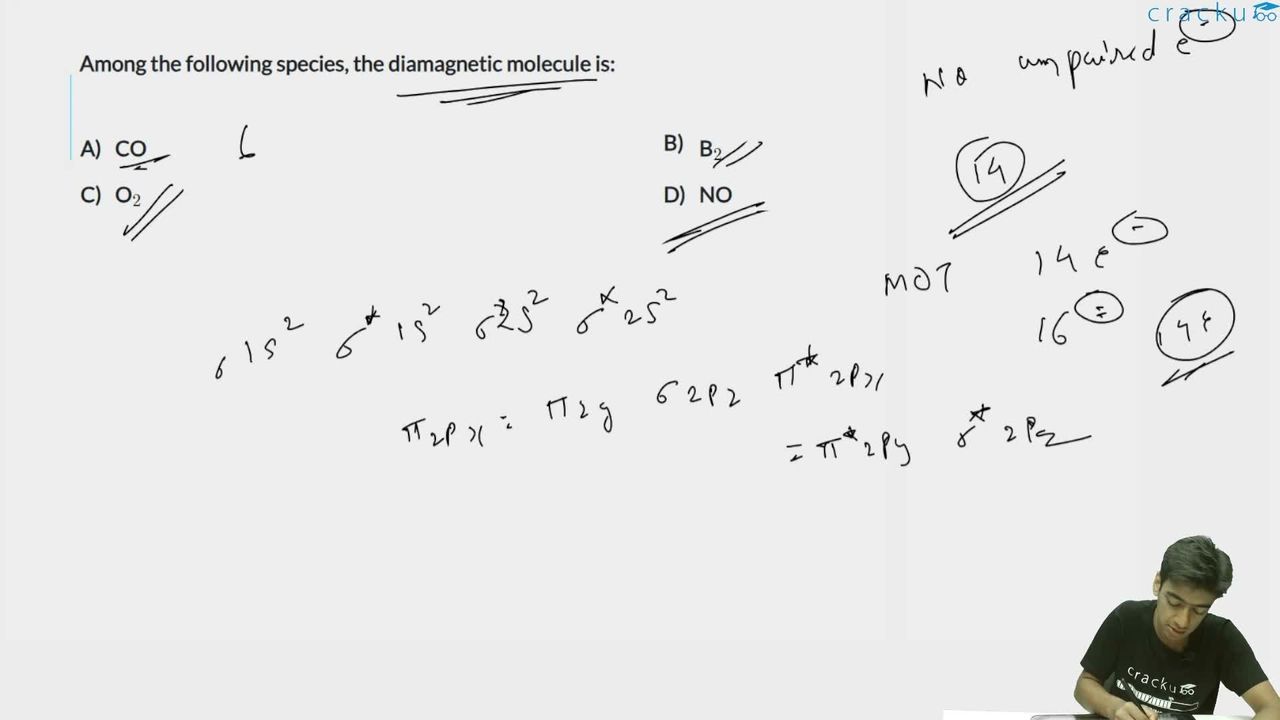 cracku
Among the following species, the diamagnetic molecule is:
No unpaired e⁻
A) CO
B) B₂
C) O₂
D) NO
14
MOT 14 e⁻
16
14 e
σ 1s² σ* 1s² σ2s² σ* 2s²
π 2px = π 2y σ 2pz π* 2px
= π* 2py σ* 2pz
cracku